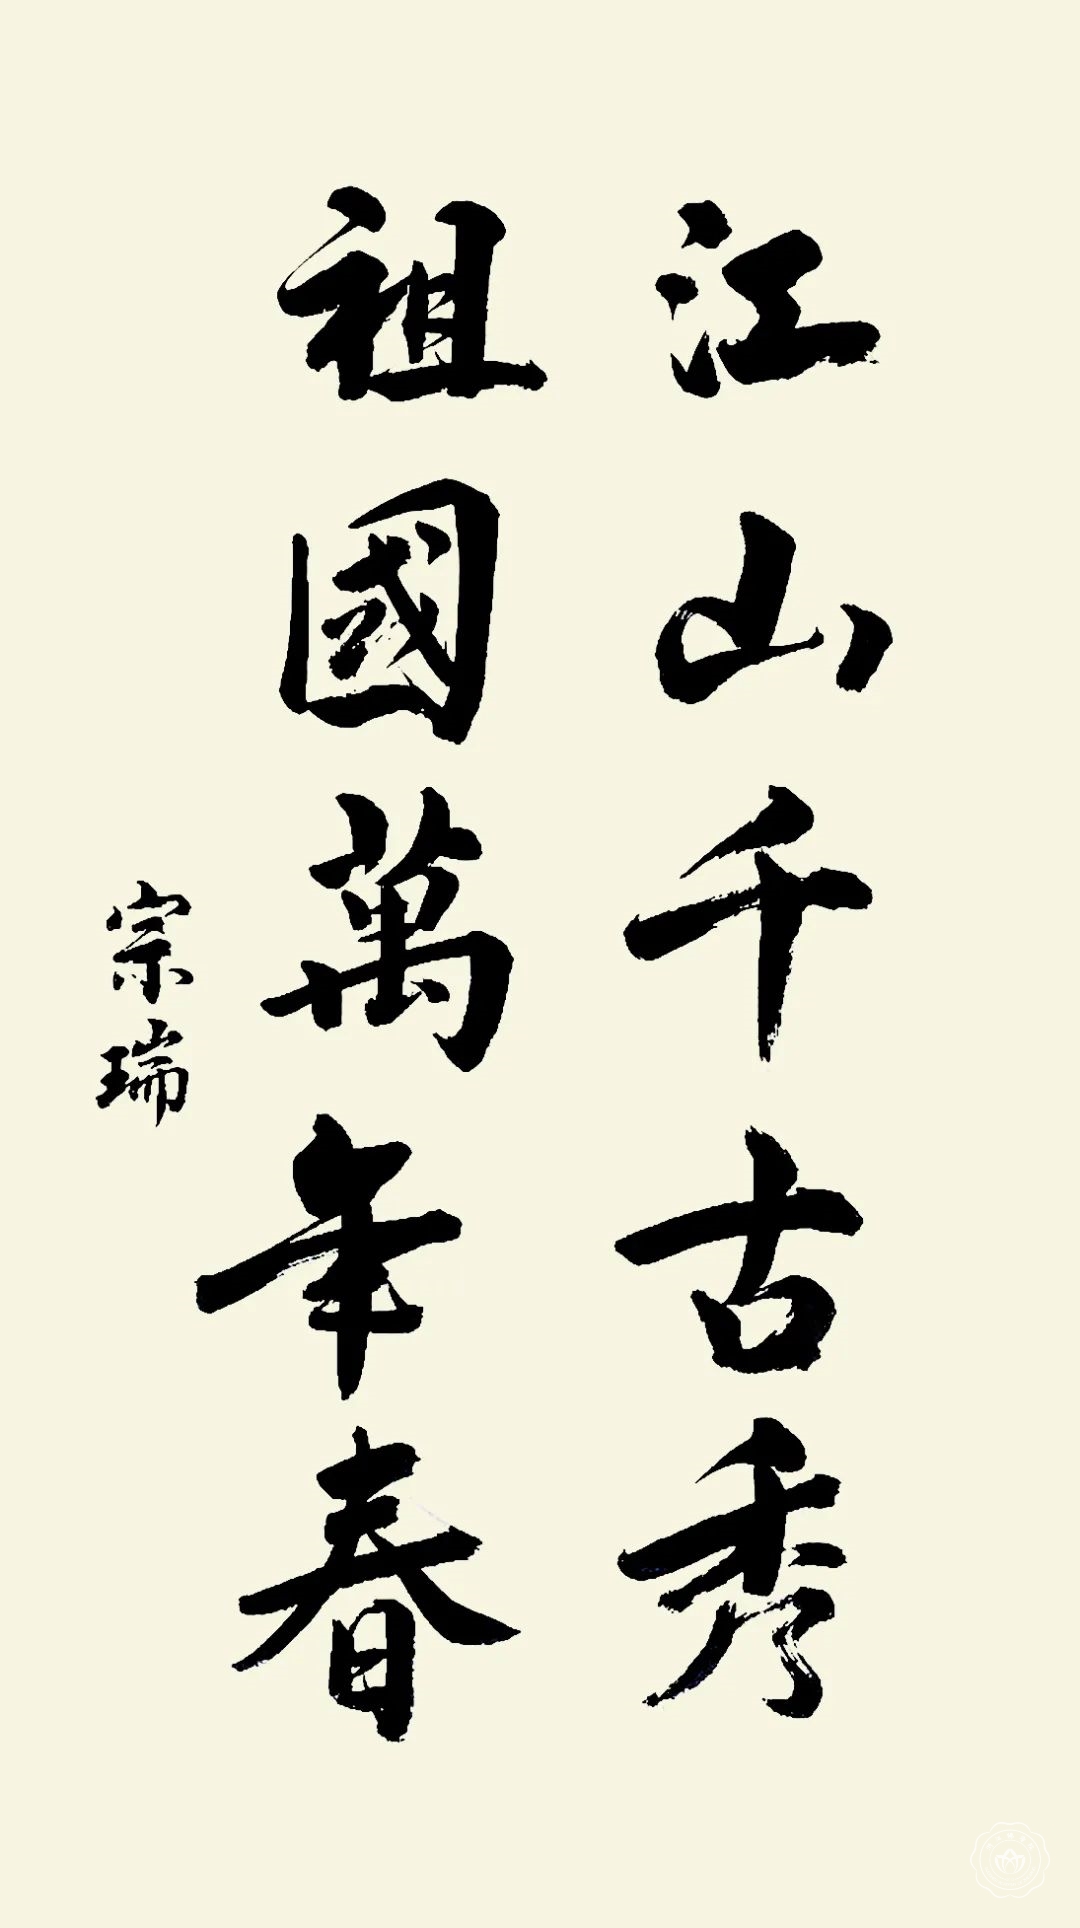 江山千古秀
祖國萬年春
宗瑞